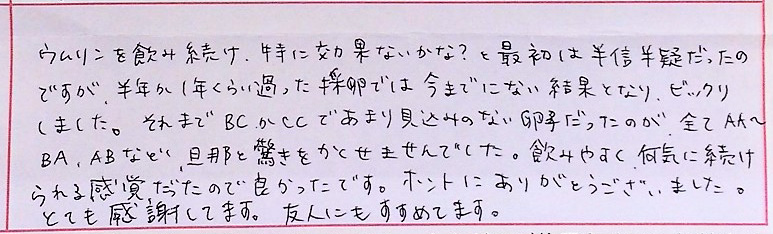 ウムリンを飲み続け、特に効果ないかな？と最初は半信半疑だったの
ですが、半年か1年くらい過った採卵では今までにない結果となり、ビックリ
しました。それまでBCかCCであまり見込みのない卵子だったのが、全てAA〜
BA、ABなどに、旦那と驚きをかくせませんでした。飲みやすく、何気に続け
られる感覚だたので良かったです。ホントにありがとうございました。
とても感謝してます。友人にもすすめてます。